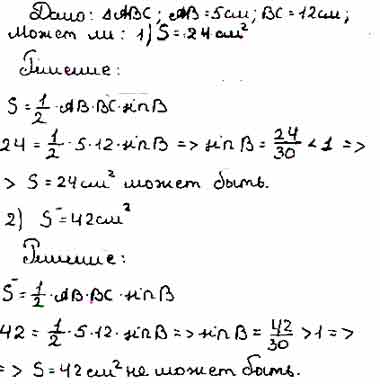 Дано: ΔABC; AB=5см; BC=12см;
может ли: 1) S=24см²
Решение:
S=1/2·AB·BC·sinB
24=1/2·5·12·sinB=>sinB=24/30<1=>
> S=24см² может быть.
2) S=42см²
Решение:
S=1/2·AB·BC·sinB
42=1/2·5·12·sinB=>sinB=42/30>1=>
=> S=42см² не может быть.